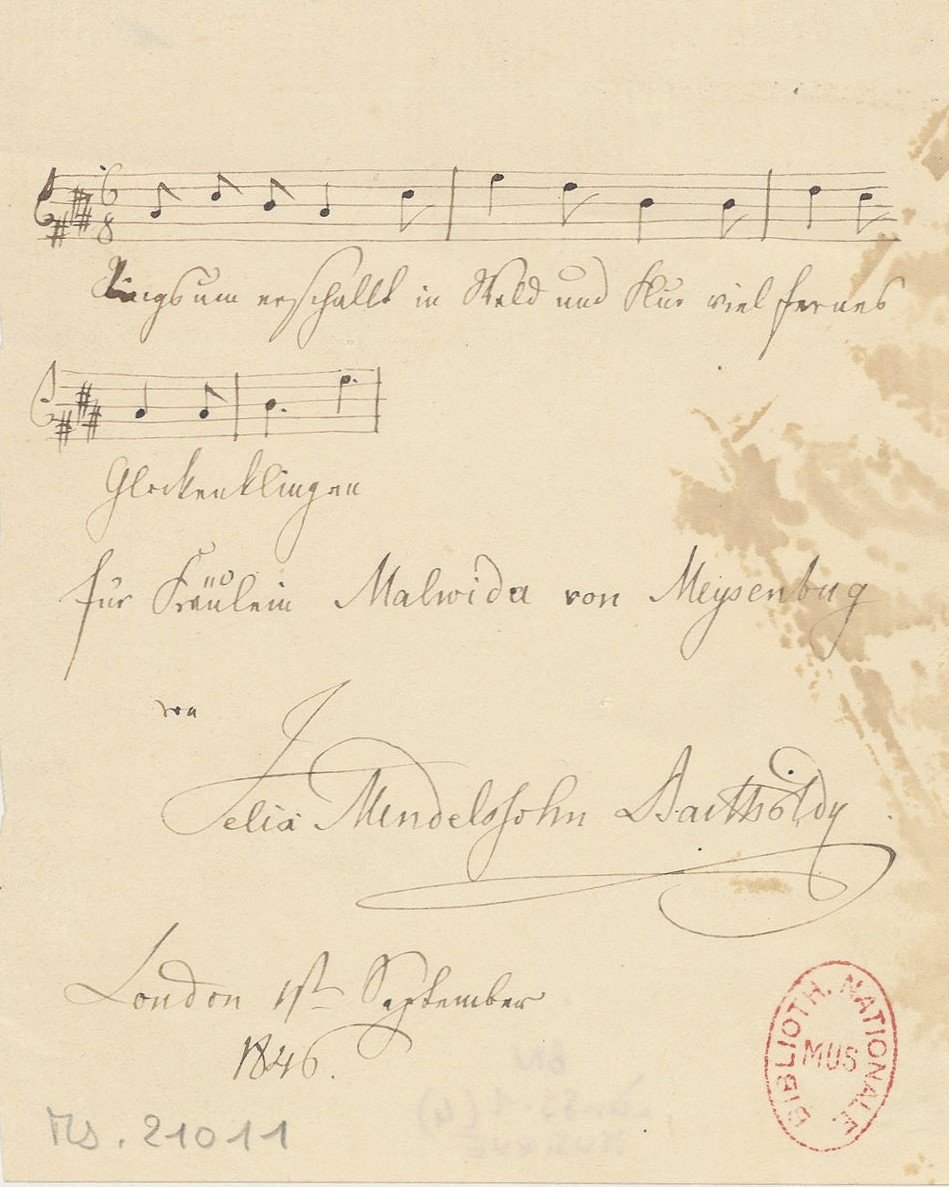 6
8
Ringsum erschallt in Wald und Flur viel fernes
Glockenklingen
für Fräulein Malwida von Meysenbug
von
Felix Mendelssohn Bartholdy
London 1st September
1846.
Ms. 21011
BIBLIOTH. NATIONALE
MUS